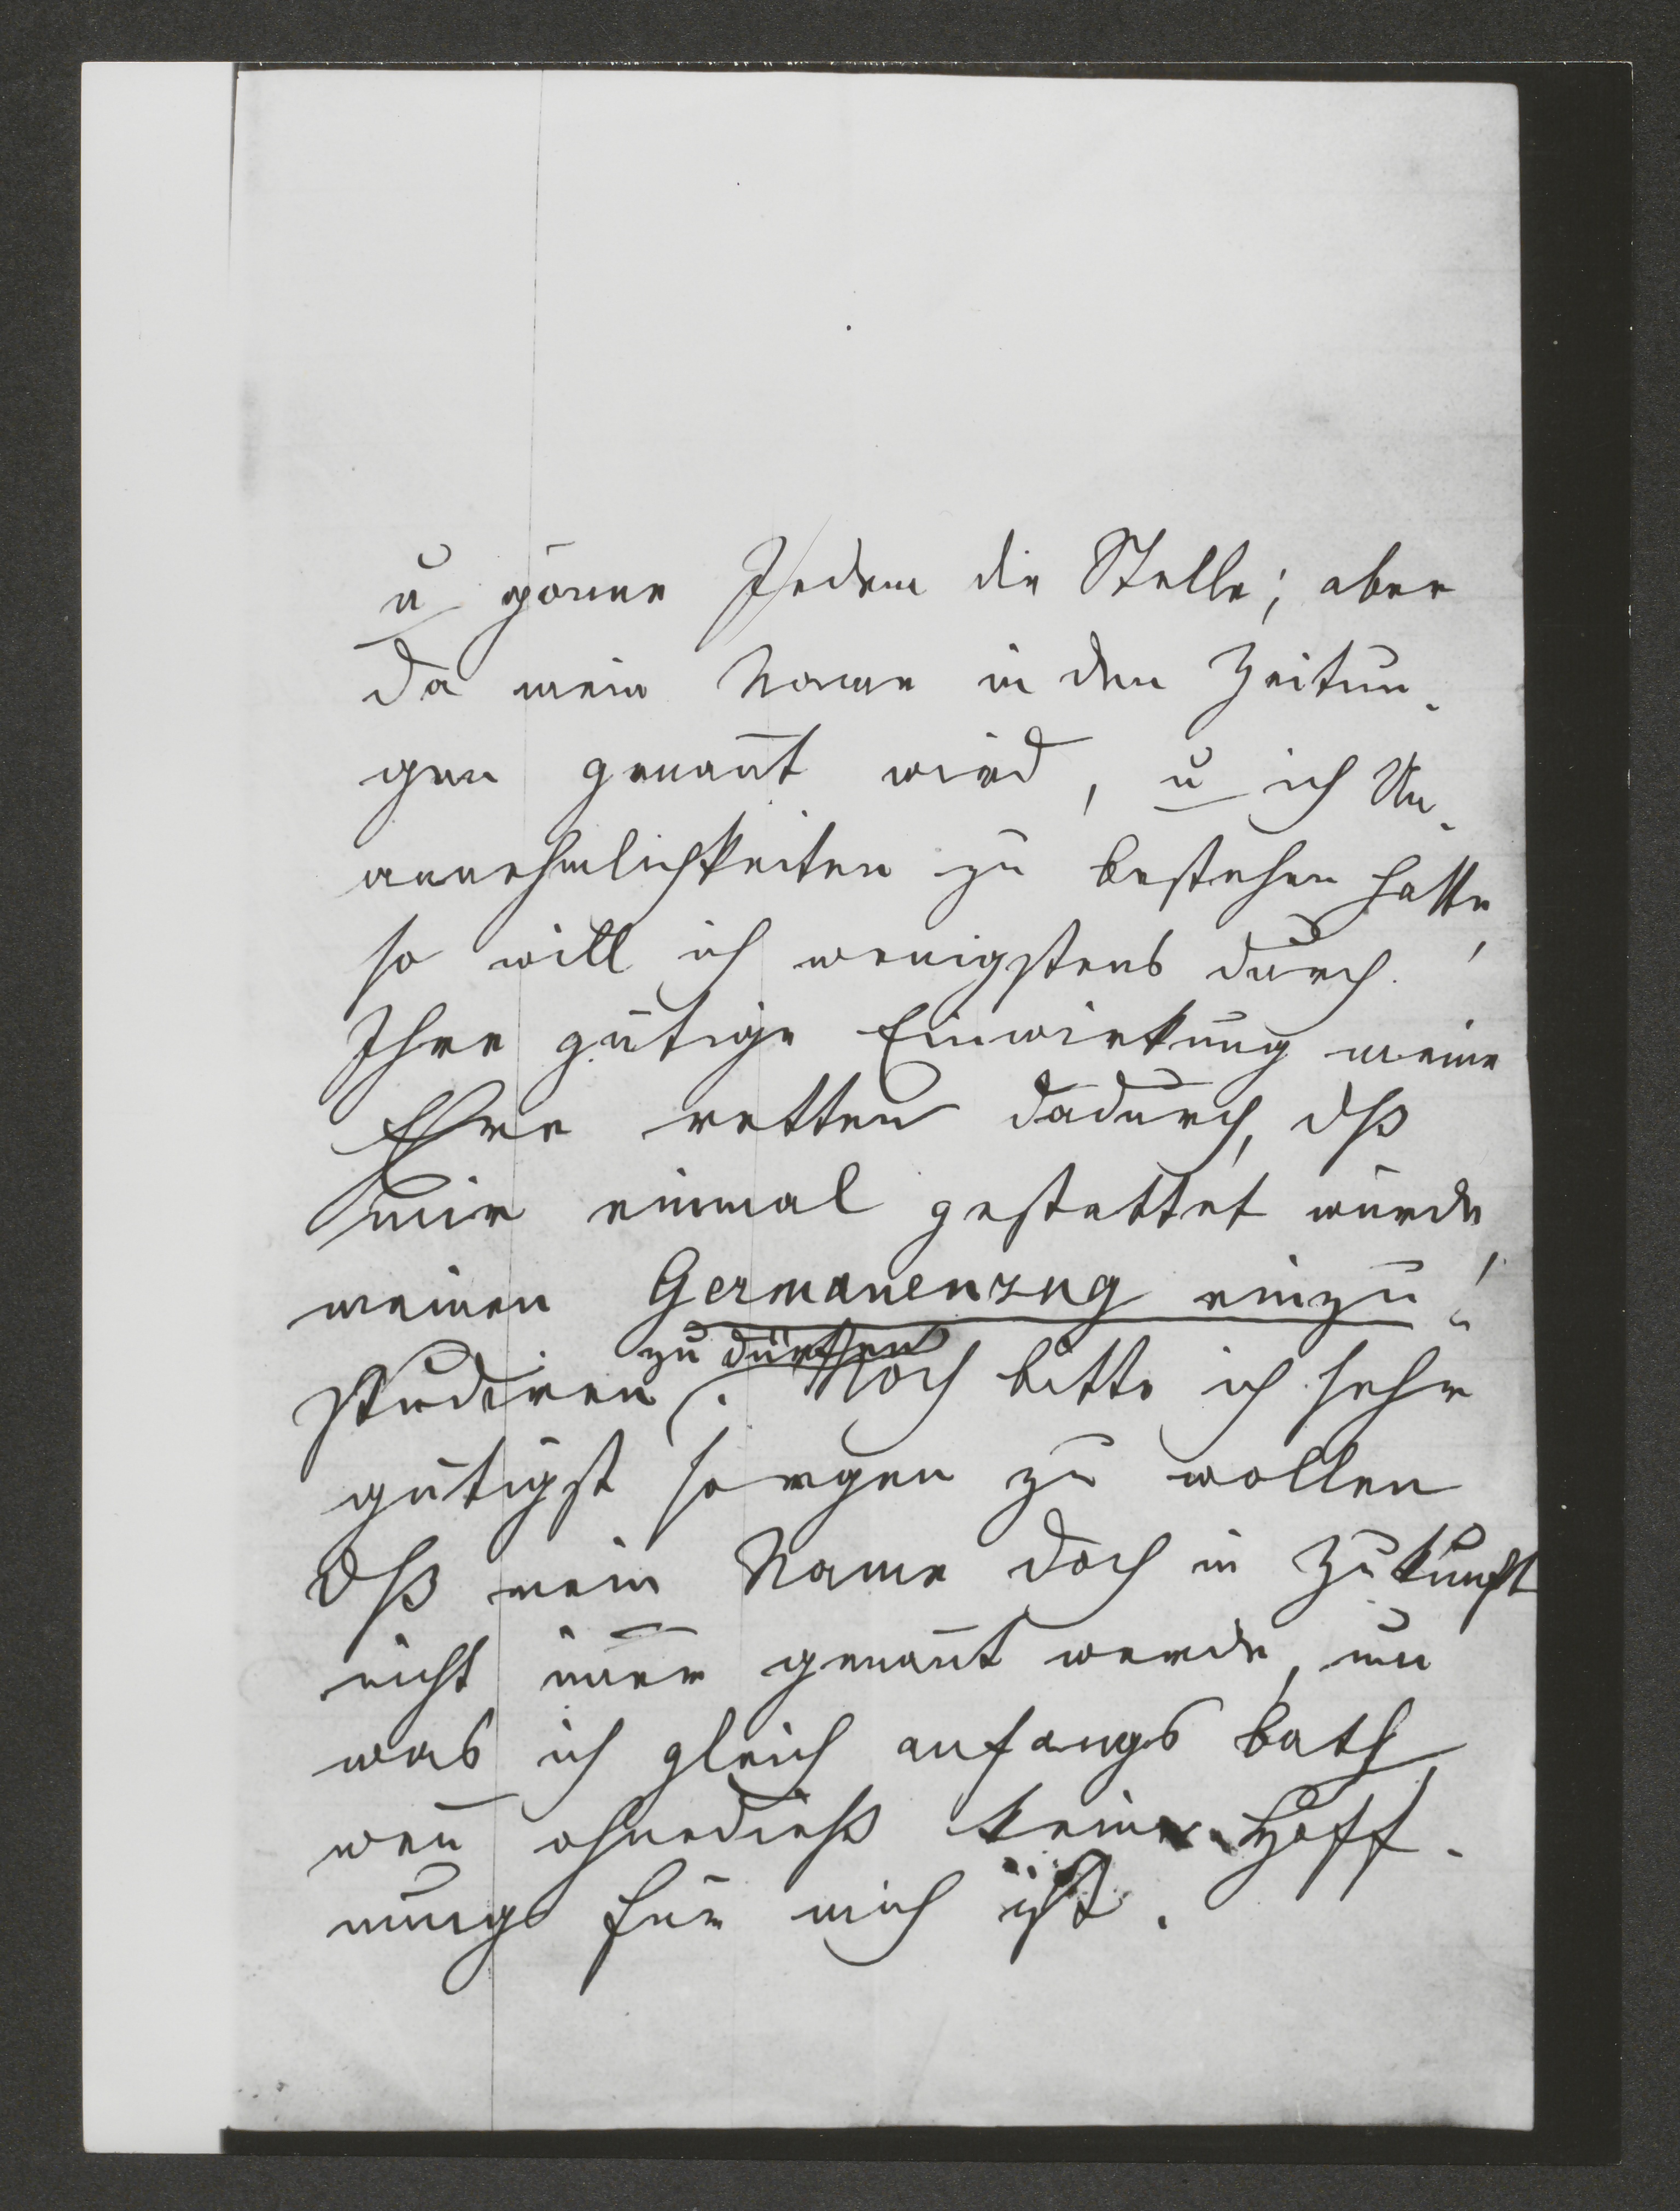 u göne Jedem die Stelle; aber
da mein Name in den Zeitun-
gen genañt wird, u ich Un-
annehmlichkeiten zu bestehen hatte,
so will ich wenigstens durch
Ihre gütige Einwirkung meine
Ehre retten dadurch, dß
mir einmal gestattet würde
meinen Germanenzug einzu-
studiren zu dürfen. Noch bitte ich sehr
gütigst sorgen zu wollen
dß mein Name doch in Zukunft
nicht im̄er genañt werde, um
was ich gleich anfangs bath,
weñ ohnedieß keine Hoff-
nung für mich ist.